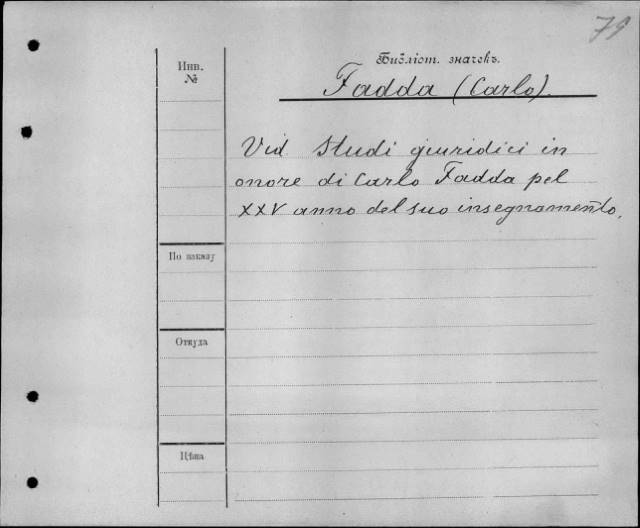 79
Библіот. значекъ.
Инв.
№
Fadda (Carlo).
Vid Studi giuridici in
onore di Carlo Fadda pel
XXV anno del suo insegnamento.
По заказу
Откуда
Цѣна